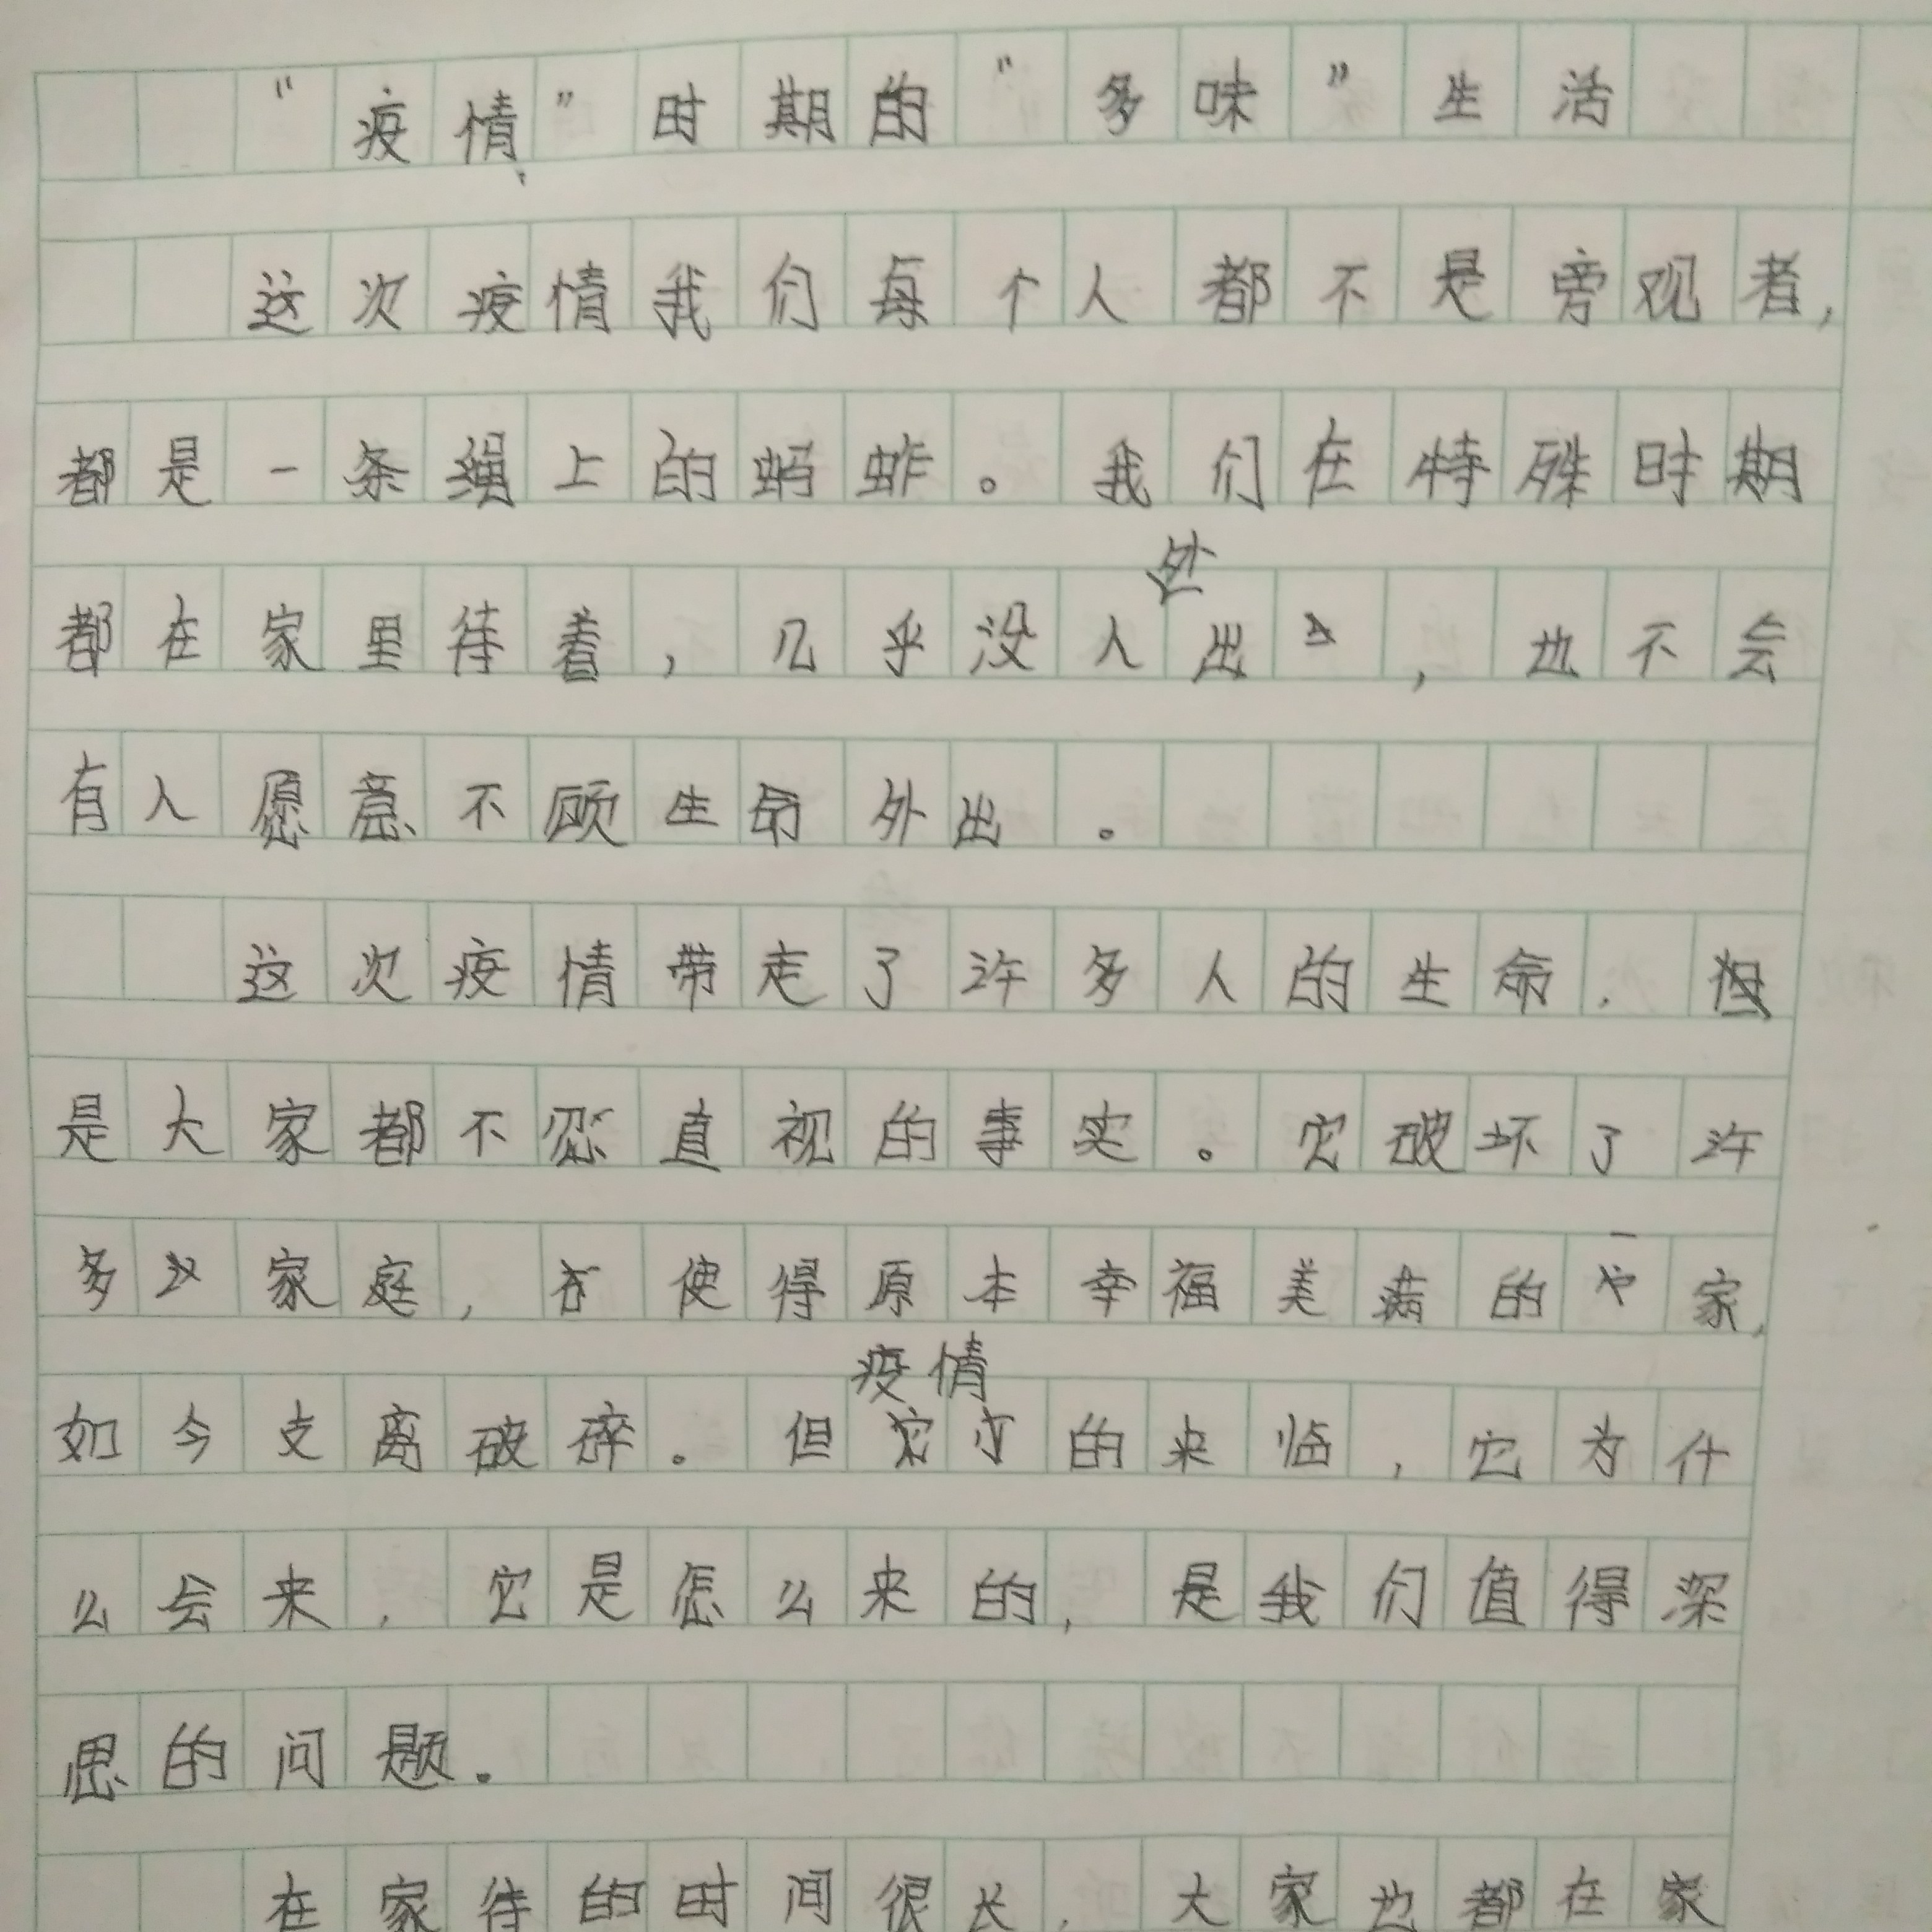 “疫情”时期的“多味”生活
这次疫情我们每个人都不是旁观者，
都是一条绳上的蚂蚱。我们在特殊时期
都在家里待着，几乎没人外出，也不会
有人愿意不顾生命外出。
这次疫情带走了许多人的生命，但
是大家都不忍直视的事实。它破坏了许
多家庭，使得原本幸福美满的一家，
如今支离破碎。但疫情的来临，它为什
么会来，它是怎么来的，是我们值得深
思的问题。
在家待的时间很长，大家也都在家